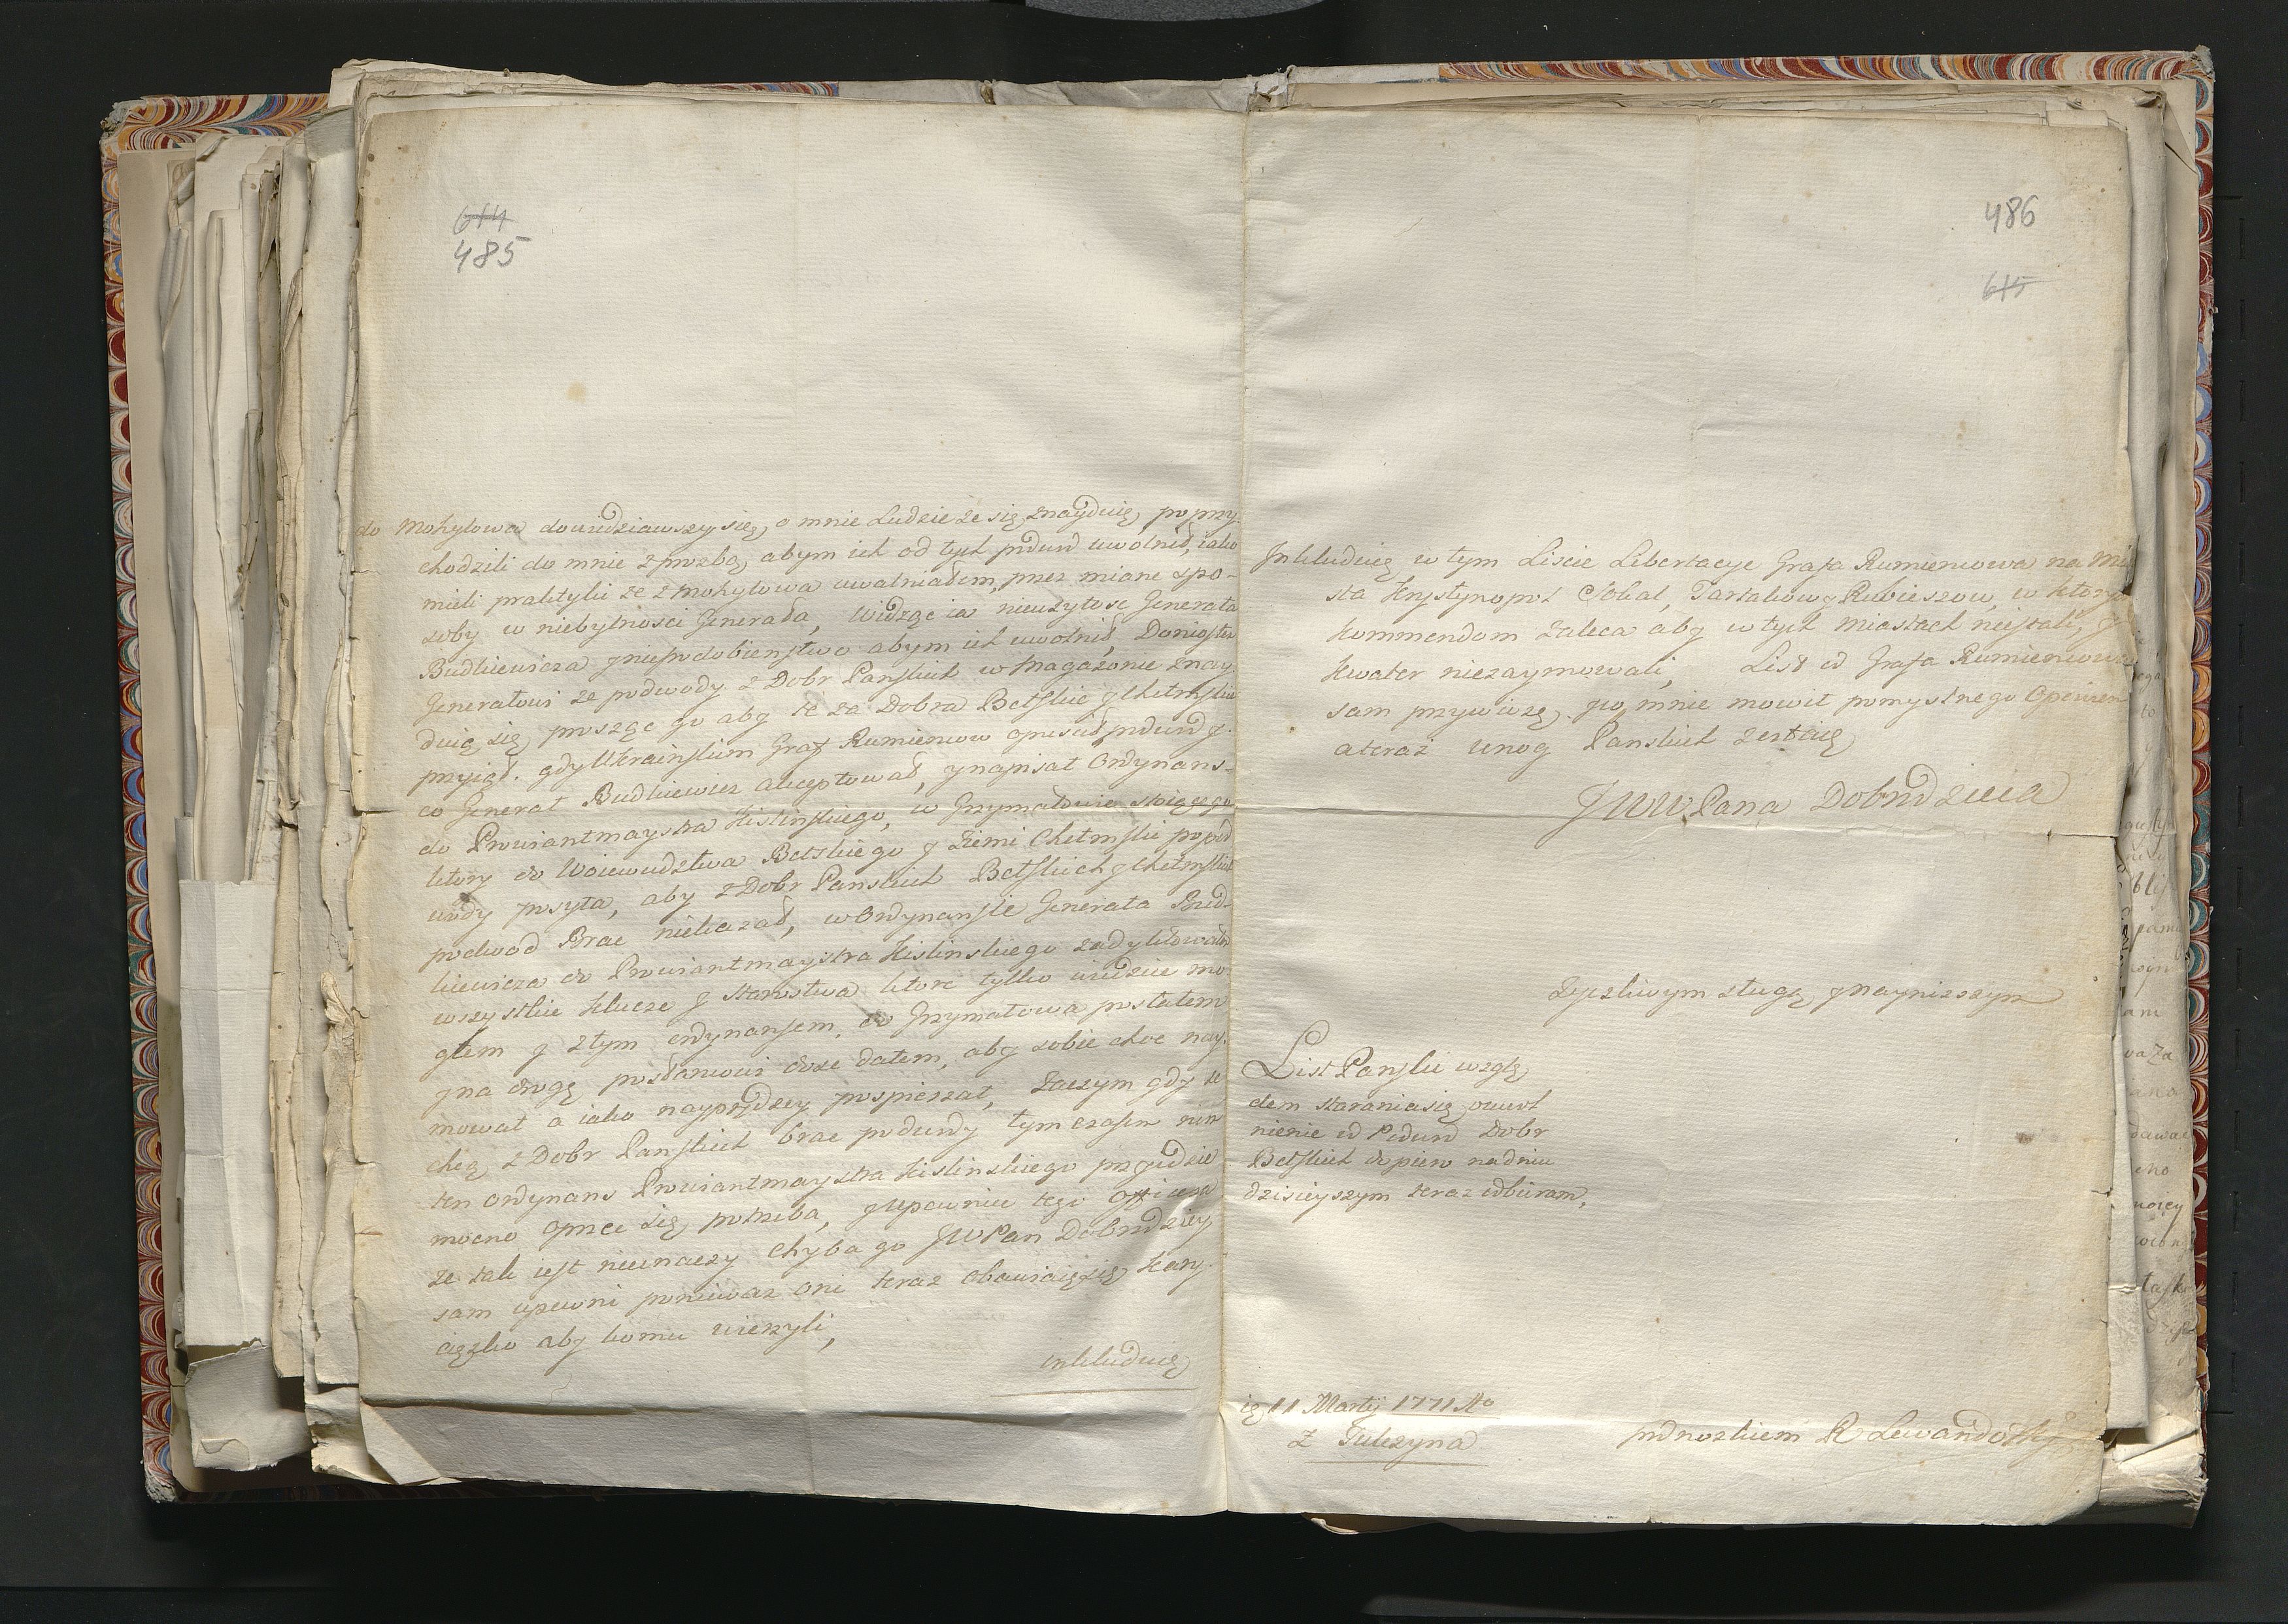 614
485
do Mohylowa dowiedziawszy się, o mnie Ludzie że się znayduię, poprzy-
chodzili do mnie z prozbą, abym ich od tych podwod uwolnił, iako
mieli praktyki że z Mohylowa uwalniałem, przez miane spo-
soby w niebytnosci Generała, Widząc ia nieużytosc Generała
Budkiewicza y niepodobienstwo abym ich uwolnił, Doniosłem
Generałowi że podwody z Dobr Panskich w Magazonie znay-
duią się, prosząc go aby te za Dobra Bełskie y Chełmskie
przyiął. gdy Ukrainskim Graf Rumieniow opuscił podwod y.
co Generał Budkiewicz akceptował, y napisał Ordynans-
do Prowiantmaystra Kislinskiego, w Grzymałowie stoiącego
ktory do Woiewudztwa Bełskiego y Ziemi Chełmski po pod
wody posyła, aby z Dobr Panskich Bełskich y Chełmskich
podwod Brac niekazał, w Ordynansie Generała Bud-
kiewicza do Prowiantmaystra Kislinskiego zadyktowałem
wszystkie Klucze y Starostwa ktore tylko wiedzie mo
głem y z tym ordynansem, do Grzymałowa posłałem
y na drogę posłancowi dosc dałem, aby sobie choc nay-
mował a iako nayprędzey pospieszał, Zaczym gdy ze
chcą z Dobr Panskich brac podwody tym czasem nim
ten Ordynans Prowiantmaystra Kislinskiego przyidzie
mocno oprzec się potrzeba, y upewnic tego Officera
że tak iest nieinaczy Chyba go JWPan Dobrodziey
sam upewni poniewaz oni teraz obawiaią się Kary.
ciężko aby komu wierzyli,
inkluduię
486
615
Inkluduię w tym Liscie Libertacye Grafa Rumieniowa na Mia
sta Krystynopol Sokal, Tartakow y Rubieszow, w ktorych
kommendom zaleca aby w tych miastach niestali, y
kwater niezaymowali, List od Grafa Rumieniowa
sam przywiozę, po mnie mowił pomyslnego
a teraz unog Panskich zesłcię
JWWPana Dobrodzieia
Zyczliwym sługą y nayniszszym
List Panski wzglę
dem starania się ouwol
nienie od Podwod Dobr
Bełskich dopiero na dniu
dzisieyszym teraz odbieram,
11 Martij 1771 Ao
Z Tulczyna
podnozkiem R Lewandowsky